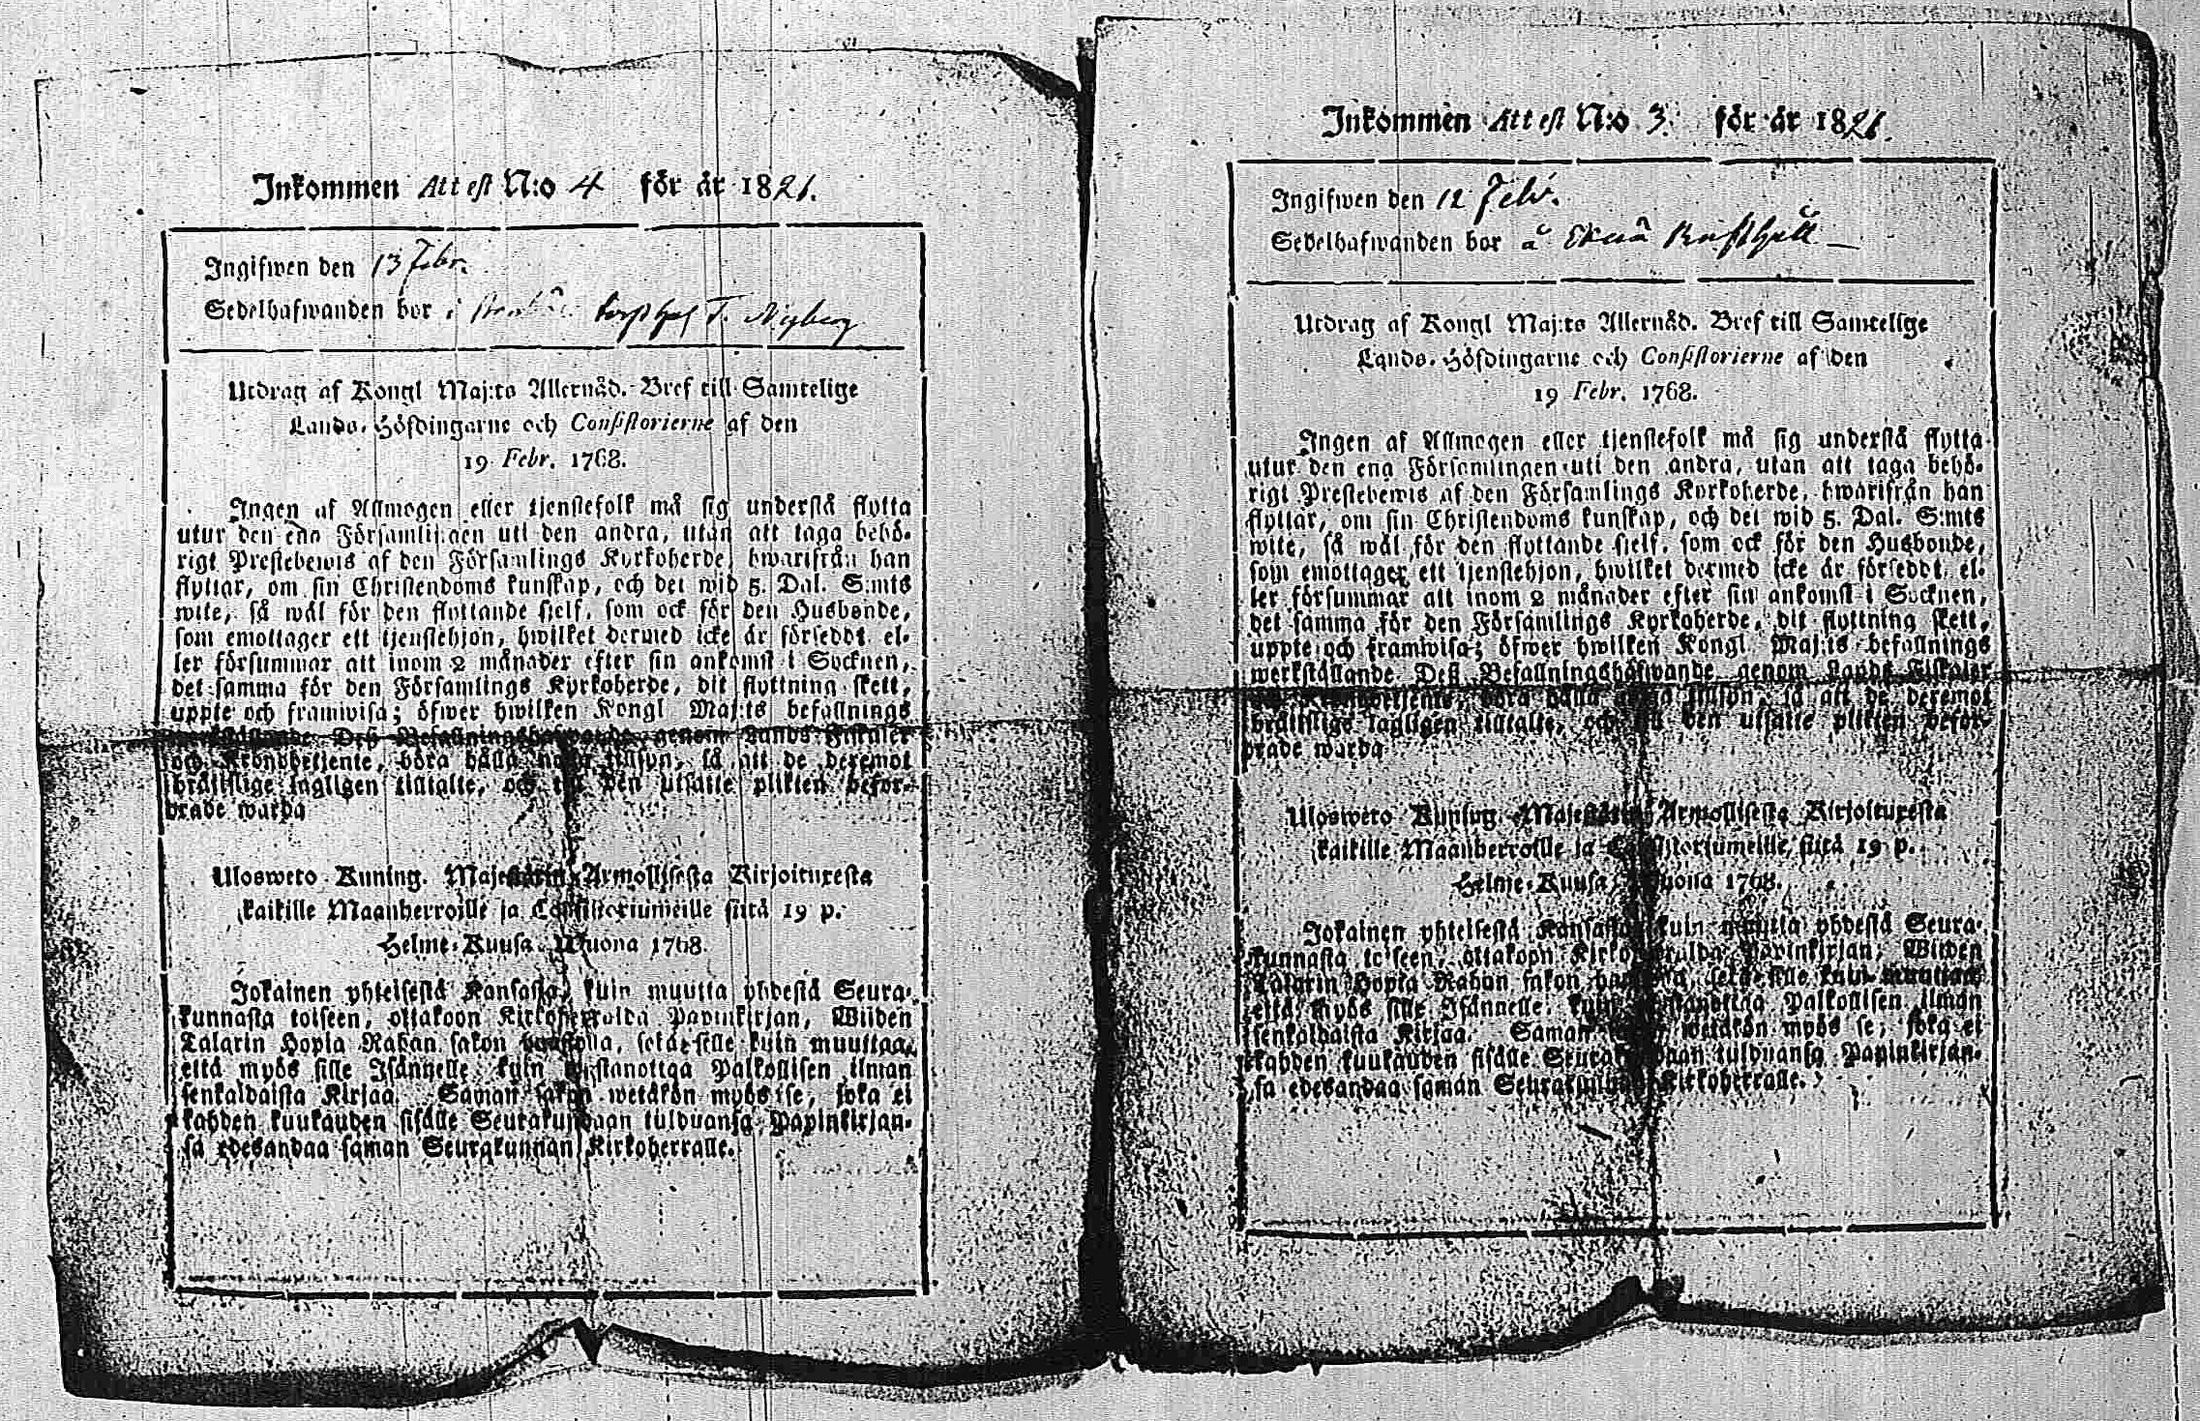 Inkommen Attest N:o 4 för år 1821.
Ingifwen den 13 Febr.
Sedelhafwanden bor i torp hos T. Nyberg
Utdrag af Kongl Maj:ts Allernåd. Bref till Samtelige
Lands-Höfdingarne och Consistorierne af den
19 Febr. 1768.
Ingen af Allmogen eller tjenstefolk må sig understå flytta
utur den ena Församlingen uti den andra, utan att taga behö-
rigt Prestebewis af den Församlings Kyrkoherde, hwarifrån han
flyttar, om sin Christendoms kunskap, och det wid 5. Dal. S:mts
wite, så wäl för den flyttande sielf, som ock för den Husbonde,
som emottager ett tjenstehjon, hwilket dermed icke är försedt, el-
ler försummar att inom 2 månader efter sin ankomst i Socknen,
det samma för den Församlings Kyrkoherde, dit flyttning skett,
uppte och framwisa; öfwer hwilken Kongl Maj:ts befallnings
werkställande Deß Befallningshafwande genom Lands-Fiskaler
och Kronobetjente, böra hålla noga tillsyn, så att de deremot
brottslige lagligen tilltalte, och till den utsatte plikten befor-
drade warda
Ulosweto Kuning. Majestätin Armollisesta Kirjoituxesta
kaikille Maanherroille ja Consistoriumeille siitä 19 p.
Helme-Kuusa Wuona 1768.
Jokainen yhteisestä Kansasta, kuin muutta yhdestä Seura-
kunnasta toiseen, ottakoon Kirkoherralda Papinkirjan, Wiiden
Talarin Hopia Rahan sakon haastolla, sekä sille kuin muuttaa,
että myös sille Isännelle, kuin wastanottaa Palkollisen ilman
senkaldaista Kirjaa. Saman sakon wetäkön myös se, joka ei
kahden kuukauden sisälle Seurakundaan tulduansa Papinkirjan-
sa edesandaa saman Seurakunnan Kirkoherralle.
Inkommen Attest N:o 3. för år 1821.
Ingifwen den 12 Febr.
Sedelhafwanden bor å Eknä Rusthåll
Utdrag af Kongl Maj:ts Allernåd. Bref till Samtelige
Lands-Höfdingarne och Consistorierne af den
19 Febr. 1768.
Ingen af Allmogen eller tjenstefolk må sig understå flytta
utur den ena Församlingen uti den andra, utan att taga behö-
rigt Prestebewis af den Församlings Kyrkoherde, hwarifrån han
flyttar, om sin Christendoms kunskap, och det wid 5. Dal. S:mts
wite, så wäl för den flyttande sielf, som ock för den Husbonde,
som emottager ett tjenstehjon, hwilket dermed icke är försedt, el-
ler försummar att inom 2 månader efter sin ankomst i Socknen,
det samma för den Församlings Kyrkoherde, dit flyttning skett,
uppte och framwisa; öfwer hwilken Kongl Maj:ts befallnings
werkställande Deß Befallningshafwande genom Lands-Fiskaler
och Kronobetjente, böra hålla noga tillsyn, så att de deremot
brottslige lagligen tilltalte, och till den utsatte plikten befor-
drade warda
Ulosweto Kuning. Majestätin Armollisesta Kirjoituxesta
kaikille Maanherroille ja Consistoriumeille, siitä 19 p.
Helme-Kuusa Wuona 1768.
Jokainen yhteisestä Kansasta, kuin muutta yhdestä Seura-
kunnasta toiseen, ottakoon Kirkoherralda Papinkirjan, Wiiden
Talarin Hopia Rahan sakon haastolla, sekä sille kuin muuttaa
että myös sille Isännelle, kuin wastanottaa Palkollisen ilman
senkaldaista Kirjaa. Saman sakon wetäkön myös se, joka ei
kahden kuukauden sisälle Seurakundaan tulduansa Papinkirjan-
sa edesandaa saman Seurakunnan Kirkoherralle.